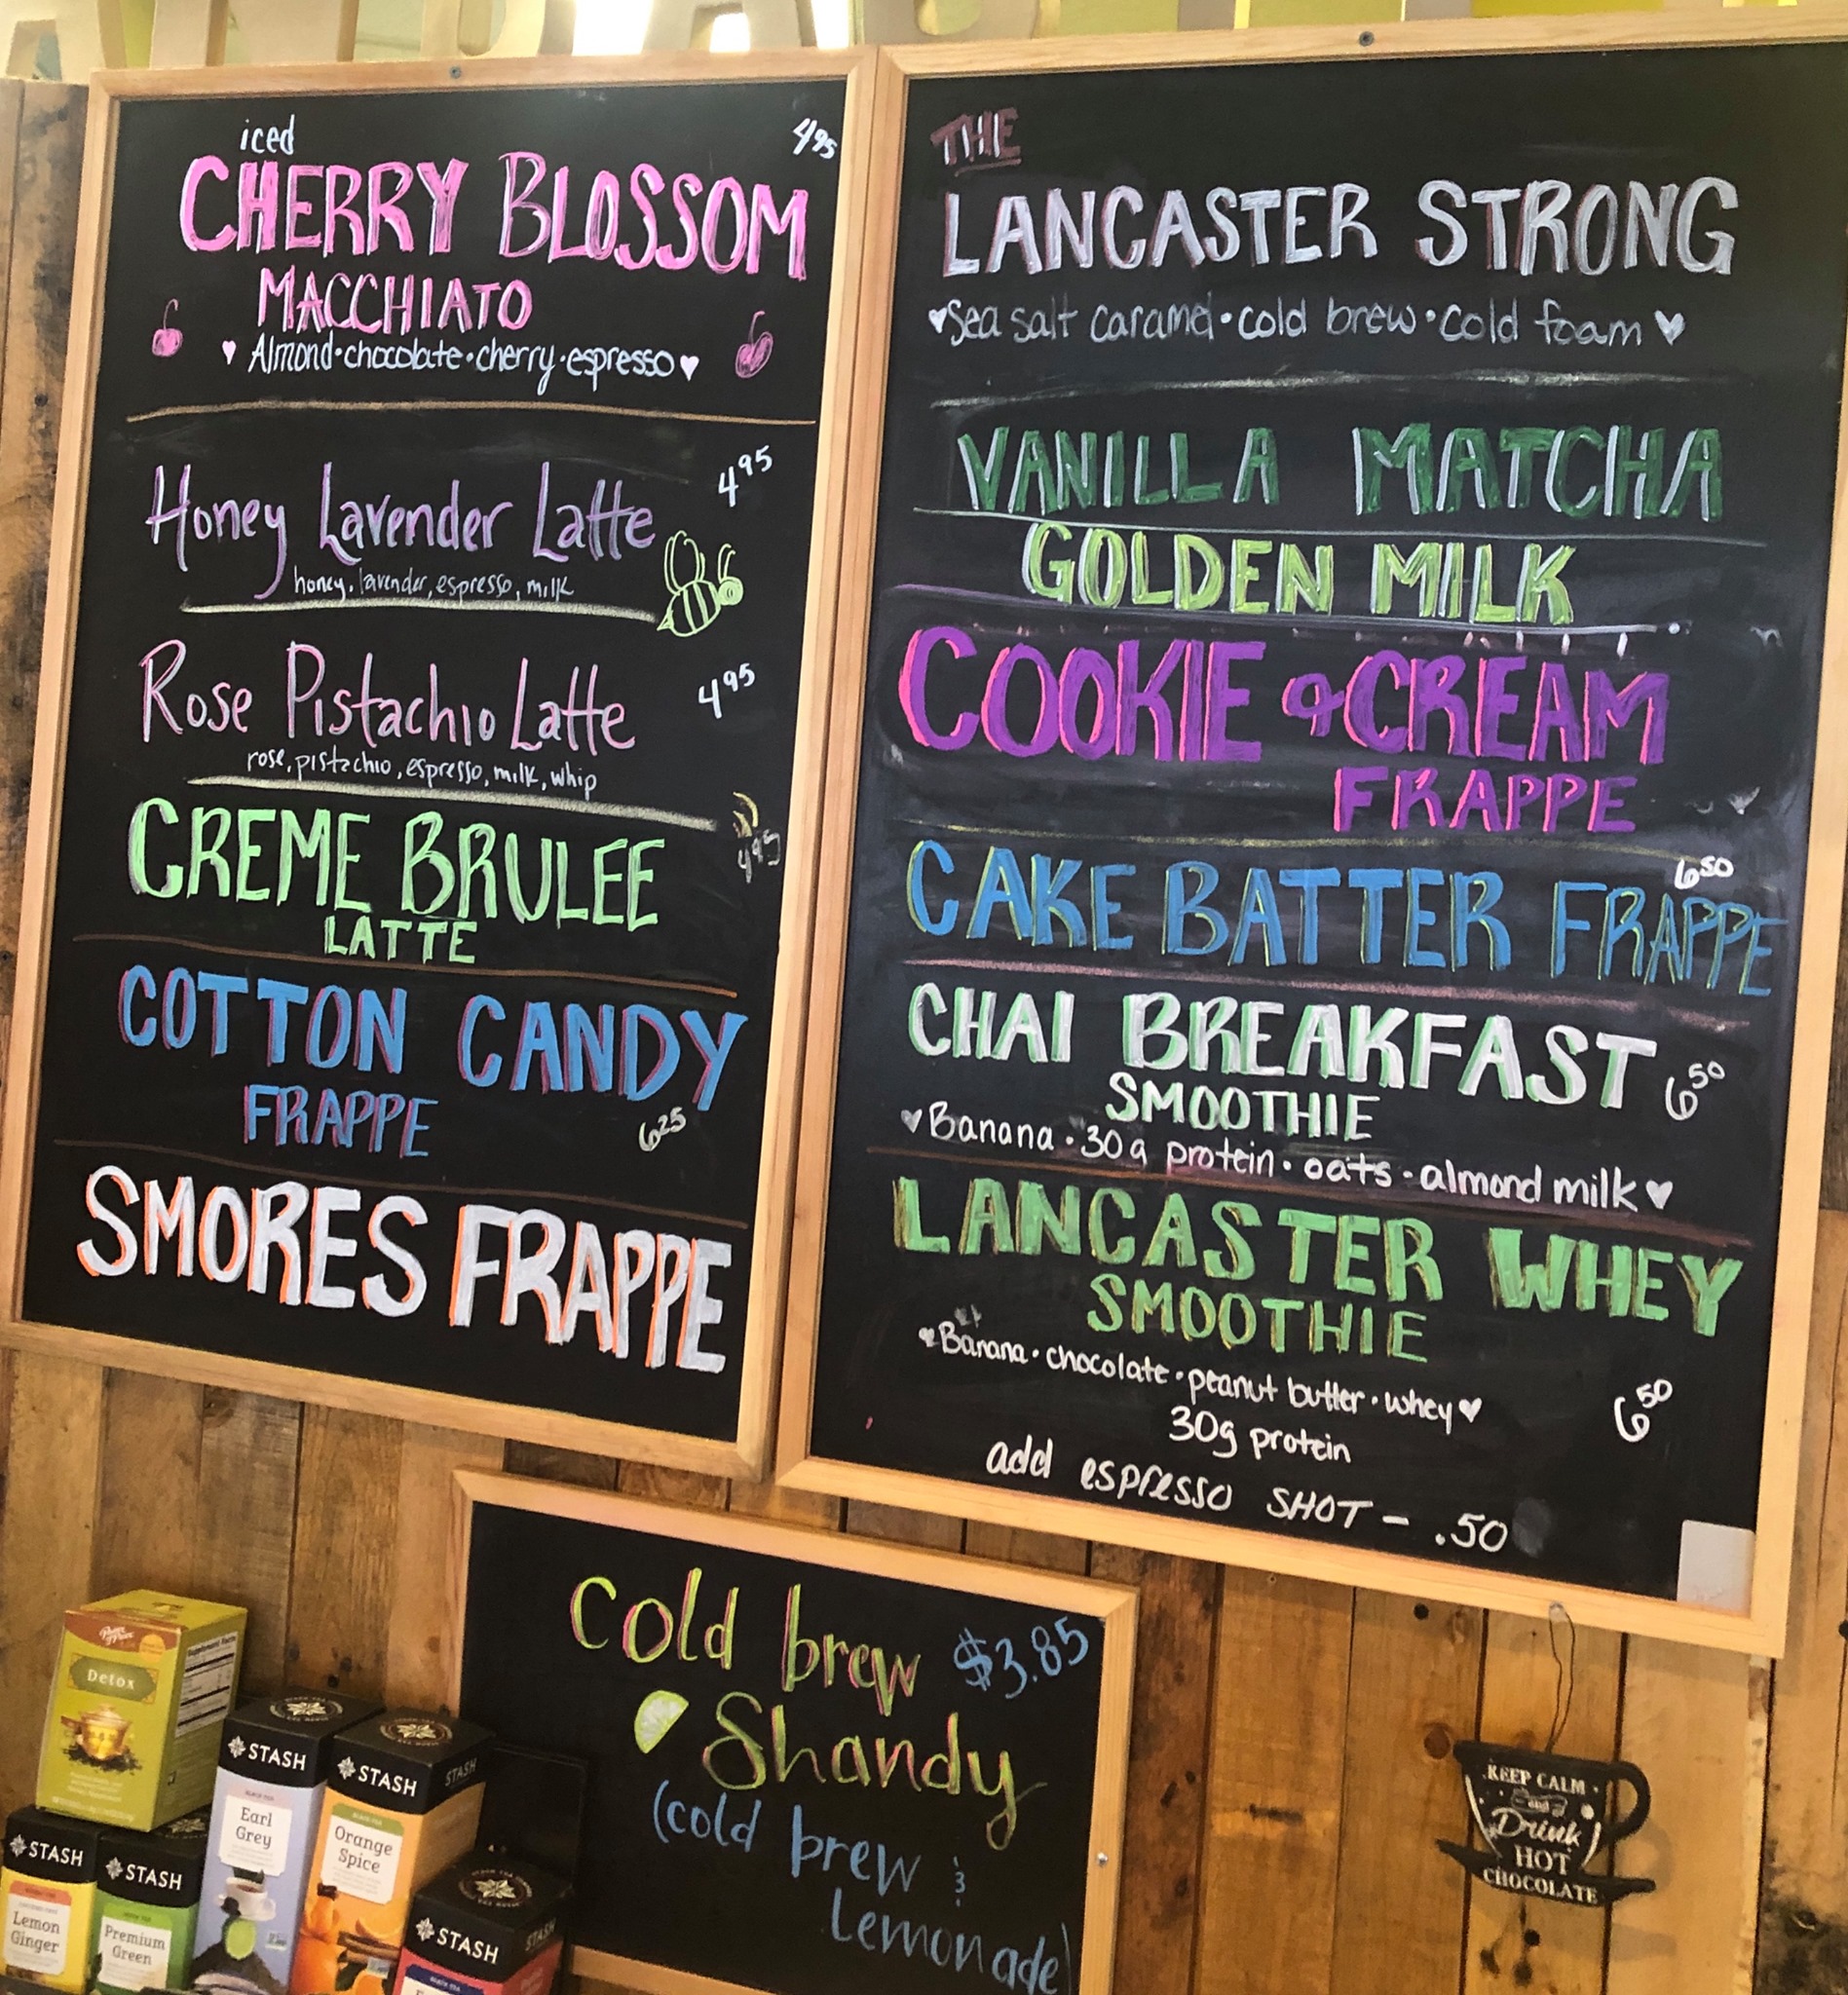 iced
4.95
CHERRY BLOSSOM
MACCHIATO
Almond • chocolate • cherry • espresso
4.95
Honey Lavender Latte
honey, lavender, espresso, milk
Rose Pistachio Latte
4.95
rose, pistachio, espresso, milk, whip
CREME BRULEE
4.95
LATTE
COTTON CANDY
FRAPPE
6.25
SMORES FRAPPE
THE
LANCASTER STRONG
Sea salt caramel • cold brew • cold foam
VANILLA MATCHA
GOLDEN MILK
COOKIE & CREAM
FRAPPE
6.50
CAKE BATTER FRAPPE
CHAI BREAKFAST
6.50
SMOOTHIE
Banana • 30g protein • oats • almond milk
LANCASTER WHEY
SMOOTHIE
Banana • chocolate • peanut butter • whey
6.50
30g protein
add espresso SHOT - .50
Cold brew $3.85
Shandy
(cold brew &
Lemonade)
Detox
STASH
Earl
Grey
STASH
STASH
Orange
Spice
STASH
Lemon
Ginger
STASH
Premium
Green
STASH
STASH
KEEP CALM
and
Drink
HOT
CHOCOLATE